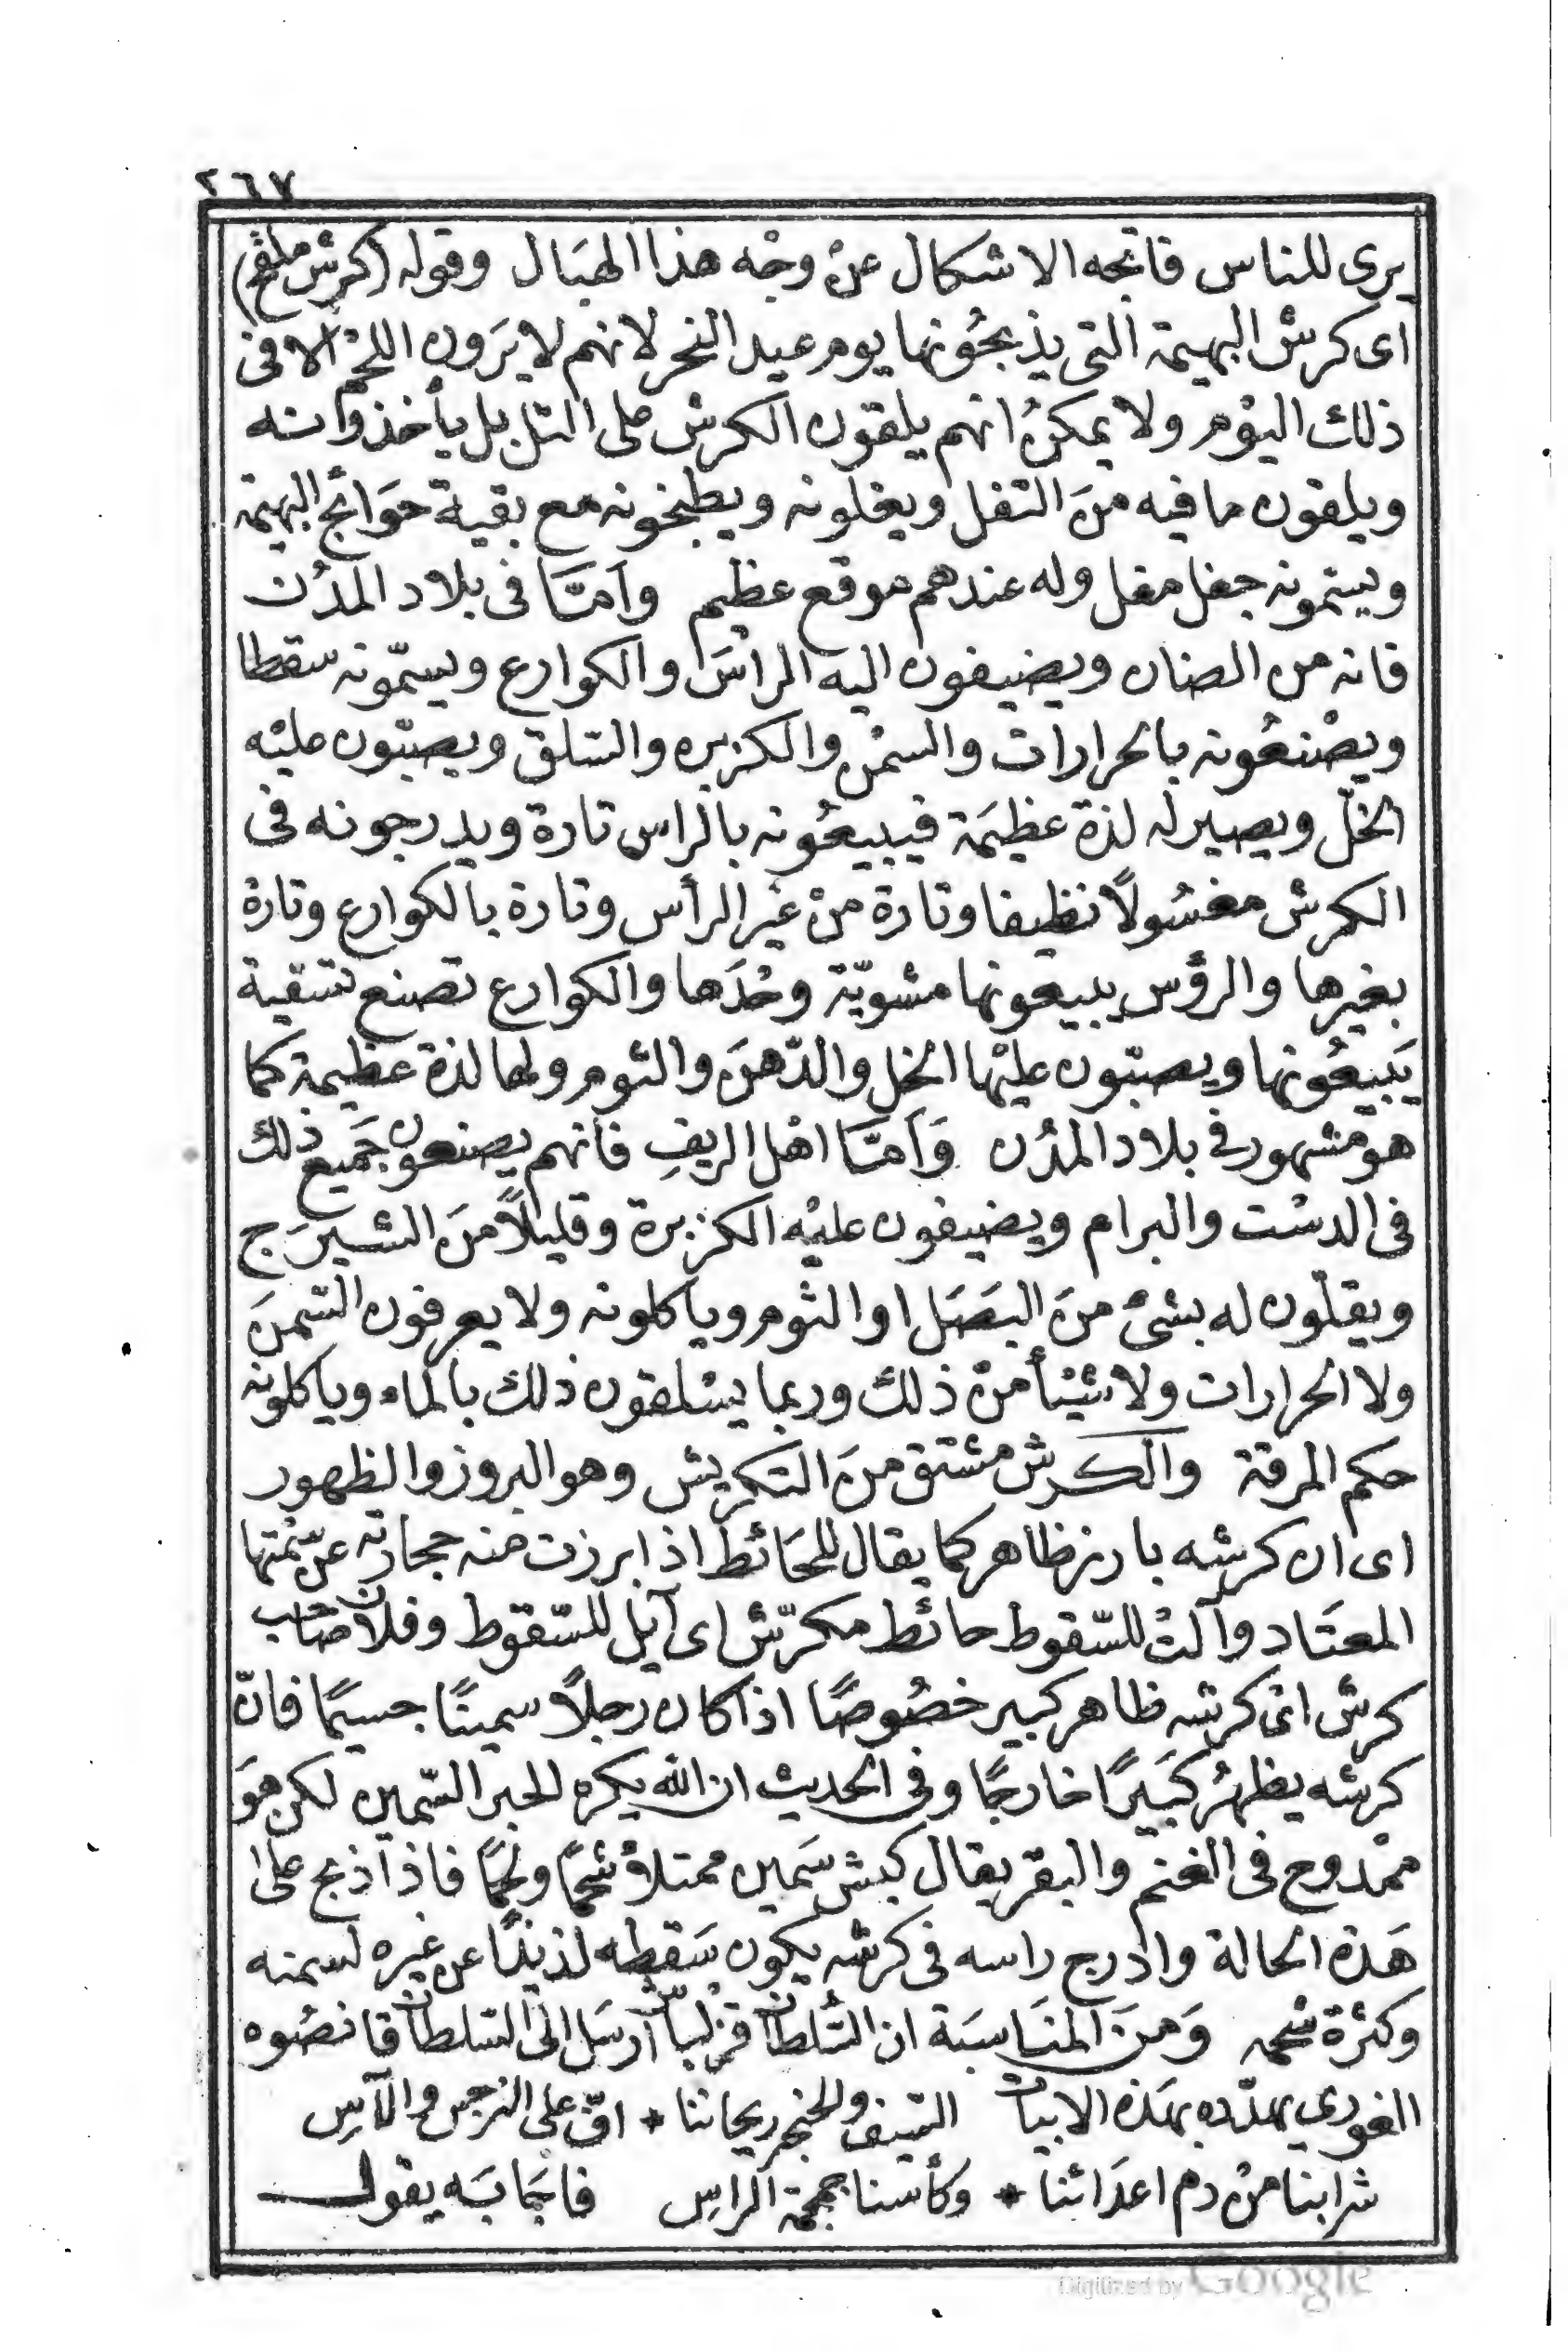 ٢٦٧
يرى للناس فاتجه الاشكال عن وجْه هذا الهبَال وقوله (كرش ملقح)
اى كرش البهيمة التى يذبحُونها يوم عيد النحر لانهم لا يَرَون اللحْم الا فى
ذلك اليوْم ولا يمكنُ انهم يلقون الكرش على التل بل يأخذوا نه
ويلقون ما فيه منَ التفل ويغلونه ويطبخونه مع بقية حوَائج البهيمة
ويسمونه جغل مغل وله عندهم موقع عظيم وَامّا فى بلاد المدُن
فانه من الضان ويضيفون اليه الراسَ والكوارع ويسمّونه سقطا
ويصْنعُونه بالحرارات والسمْن والكزبره والسّلق ويصبّون عليْه
الخلّ ويصير له لذة عظيمَة فيبيعُونه بالراس تارة ويدرجونه فى
الكرش مغسُولاً نظيفا وتارة منْ غير الرأس وتارة بالكوارع وتارة
بغيرها والرؤس يبيعونها مشويّة وحْدَها والكوارع تصنع تسقية
يَبيعُونها ويصبّون عليْها الخل والدّهنَ والثوم ولها لذة عظيمة كما
هو مشهور فى بلاد المدُن وَامّا اهْل الريفِ فانهم يصنعون جَميع ذلك
فى الدسْت والبرام ويضيفون عليْه الكزبرة وقليلاً منَ الشيرَج
ويقلّون له بشئ منَ البَصَل او الثوم وياكلونه ولا يعرفون السّمنَ
ولا الحرارات ولا شيْئاً منْ ذلك وربما يسْلقون ذلك بالماء وياكلونه
حكم المرقة والكرش مشتق منَ التكريش وهو البروز والظهور
اى ان كرشه بارز ظاهر كما يقال للحَائط اذا برزت منه حجارته عن سمْتها
المعتَاد وآلتْ للسّقوط حائط مكرّش اى آيل للسّقوط وفلان صَاحب
كرش اىْ كرشه ظاهر كبير خصُوصًا اذا كان رجلاً سمينًا جسيمًا فانّ
كرشه يظهرُ كبَيرًا خارجًا وفى الحديث ان الله يكره الحبر السّمين لكن هوَ
ممْدوح فى الغنم والبقر يقال كبش سَمين ممتلؤ شحمًا ولحمًا فاذا ذبح على
هَذه الحالة وادرج راسه فى كرشه يكون سَقطه لذيذًا عن غيره لسمنه
وكثرة شحْمه وَمنَ المنَاسبَة ان السُّلطان قزلباش أرسَل الى السّلطان قانصُوه
الغورى يهدّده بهَذه الابيات السّيف والخنجر ريحاننا * افّ على النرجس والآسِ
شرابنا منْ دم اعدَائنا * وكأسنا جمجمة الراسِ فاجَابَه يقول
Digitized by Google